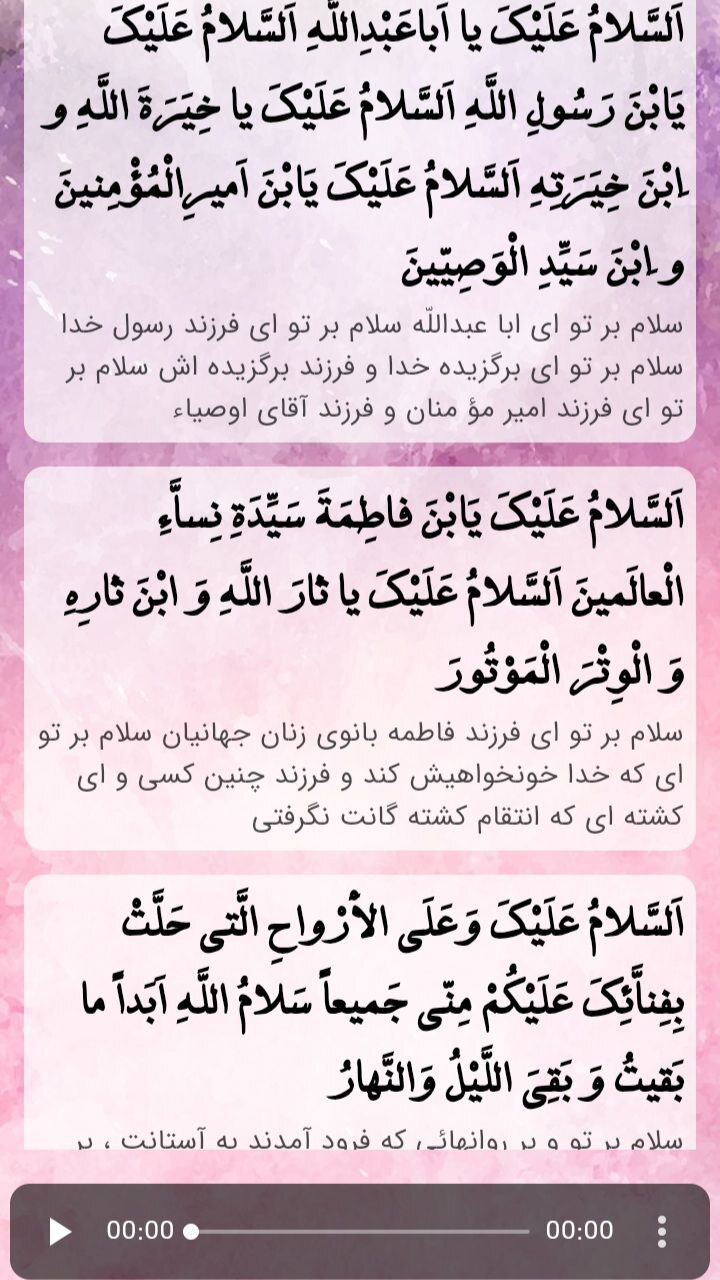 اَلسَّلامُ عَلَیْکَ یا اَباعَبْدِاللَّهِ اَلسَّلامُ عَلَیْکَ
یَابْنَ رَسُولِ اللَّهِ اَلسَّلامُ عَلَیْکَ یا خِیَرَةَ اللَّهِ و
َابْنَ خِیَرَتِهِ اَلسَّلامُ عَلَیْکَ یَابْنَ اَمیرِالْمُؤْمِنینَ
و َابْنَ سَیِّدِ الْوَصِیّینَ
سلام بر تو ای ابا عبداللّه سلام بر تو ای فرزند رسول خدا
سلام بر تو ای برگزیده خدا و فرزند برگزیده اش سلام بر
تو ای فرزند امیر مؤ منان و فرزند آقای اوصیاء
اَلسَّلامُ عَلَیْکَ یَابْنَ فاطِمَةَ سَیِّدَةِ نِساَّءِ
الْعالَمینَ اَلسَّلامُ عَلَیْکَ یا ثارَ اللَّهِ وَ ابْنَ ثارِهِ
وَ الْوِتْرَ الْمَوْتُورَ
سلام بر تو ای فرزند فاطمه بانوی زنان جهانیان سلام بر تو
ای که خدا خونخواهیش کند و فرزند چنین کسی و ای
کشته ای که انتقام کشته گانت نگرفتی
اَلسَّلامُ عَلَیْکَ وَعَلَی الاَْرْواحِ الَّتی حَلَّتْ
بِفِناَّئِکَ عَلَیْکُمْ مِنّی جَمیعاً سَلامُ اللَّهِ اَبَداً ما
بَقیتُ وَ بَقِیَ اللَّیْلُ وَالنَّهارُ
سلام بر تو و بر روانهائی که فرود آمدند به آستانت ، بر
00:00 00:00